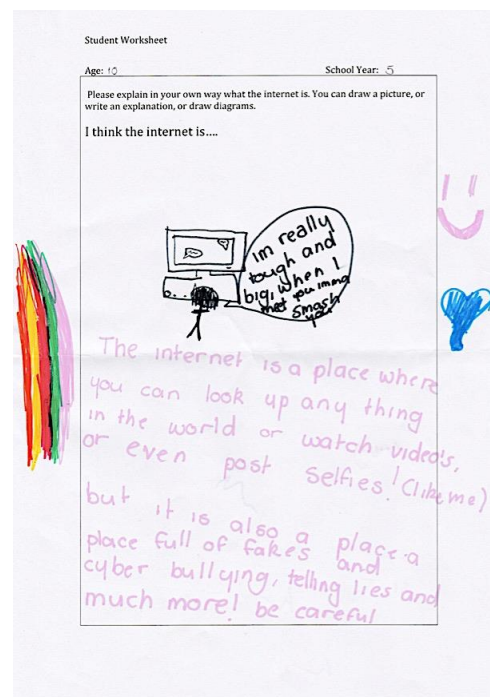 Student Worksheet
Age: 10 School Year: 5
Please explain in your own way what the internet is. You can draw a picture, or
write an explanation, or draw diagrams.
I think the internet is....
im really
tough and
big, when I
met you imma
smash
you
The internet is a place where
you can look up any thing
in the world or watch video's,
or even post selfies! (like me)
but it is also a place a
place full of fakes and
cyber bullying, telling lies and
much more! be careful